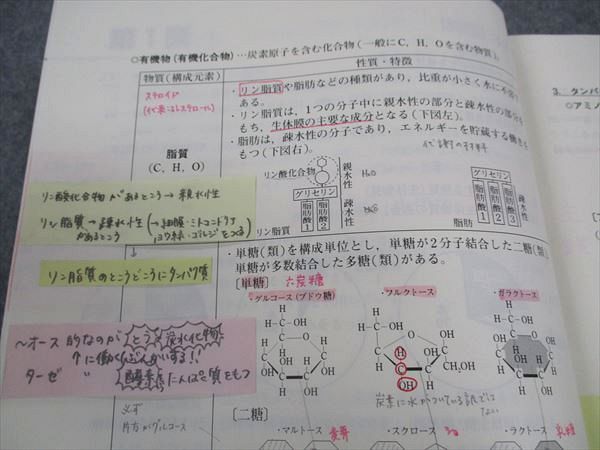 ○有機物(有機化合物)…炭素原子を含む化合物(一般にC, H, Oを含む物質)。
物質(構成元素)
性質・特徴
ステロイド
・リン脂質や脂肪などの種類があり, 比重が小さく水に不溶
ある。
・リン脂質は, 1つの分子中に親水性の部分と疎水性の部分
もち, 生体膜の主要な成分となる(下図左)。
・脂肪は, 疎水性の分子であり, エネルギーを貯蔵する働き
もつ(下図右)。
脂質
(C, H, O)
リン酸化合物
親水性
H₂O
グリセリン
脂肪酸1
脂肪酸2
疎水性
リン脂質
グリセリン
脂肪酸1
脂肪酸2
脂肪酸3
脂肪
リン酸化合物があるところ→親水性
リン脂質→疎水性
があるところ
リン脂質のところどころにタンパク質
・単糖(類)を構成単位とし, 単糖が2分子結合した二糖(類)
単糖が多数結合した多糖(類)がある。
[単糖] 六炭糖
・グルコース(ブドウ糖)
・フルクトース
・ガラクトース
～オース 的なのが とう
↑に働くぶんかいする!!
ターゼ 〃 酵素
たんぱく質をもつ
必ず
片方がグルコース
炭素に水がついている訳では
ない
[二糖]
・マルトース
・スクロース
・ラクトース
乳糖
3. タンパ
○アミノ